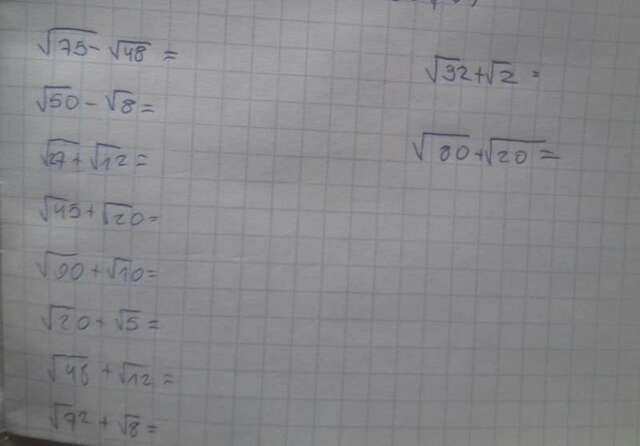 √75 - √48 =
√50 - √8 =
√27 + √12 =
√45 + √20 =
√90 + √10 =
√20 + √5 =
√48 + √12 =
√72 + √8 =
√32 + √2 =
√20 =